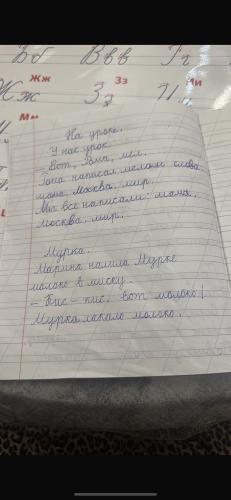 Бб Ввв Гг
Жж Зз Ии
Жж Зз И
Мм
На уроке.
У нас урок.
Вот, Гоша, мел.
Гоша написал мелом слова:
мама, Москва, мир.
Мы все написали: мама,
Москва, мир.
Мурка.
Марина налила Мурке
молоко в миску.
- Кис - кис, вот молоко!
Мурка лакало молоко.